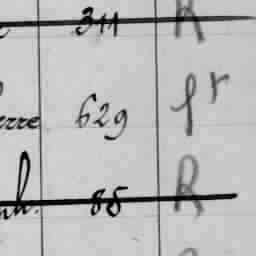 311 R
rre 629 fr
h. 85 R